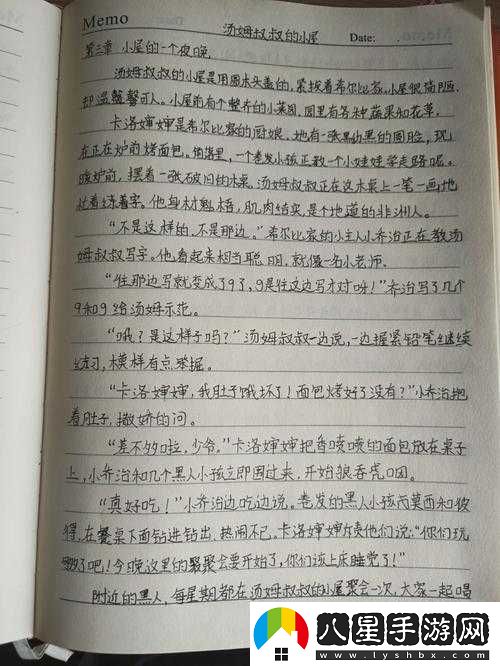 Memo
汤姆叔叔的小屋
Date:
第三章 小屋的一个夜晚
汤姆叔叔的小屋是用圆木头盖的,紧挨着希尔比家,小屋很简陋,
却温馨可人。小屋前有个整齐的小菜园,园里有各种蔬果和花草。
卡洛婶婶是希尔比家的厨娘,她有一张黝黑的圆脸,现
在正在炉前烤面包。角落里,一个卷发小孩正教一个小娃娃学走路呢。
暖炉前,摆着一张破旧的木桌,汤姆叔叔正在这木桌上一笔一画地
忙着练着字。他身材魁梧,肌肉结实,是个地道的非洲人。
“不是这样的,不是那边。”希尔比家的小主人小乔治正在教汤
姆叔叔写字。他看起来相当聪明,就像一名小老师。
“往那边写就变成了9了,g是往这边写才对呀!”乔治写了几个
9和g给汤姆示范。
“哦?是这样子吗?”汤姆叔叔一边说,一边握紧铅笔继续
练习,模样有点笨拙。
“卡洛婶婶,我肚子饿坏了!面包烤好了没有?”小乔治抱
着肚子,撒娇的问。
“差不多啦,少爷。”卡洛婶婶把香喷喷的面包放在桌子
上,小乔治和几个黑人小孩立即围过来,开始狼吞虎咽。
“真好吃!”小乔治边吃边说。卷发的黑人小孩芮莫西和彼
得,在餐桌下面钻进钻出,热闹不已。卡洛婶婶责他们说:“你们玩
够了吧!今晚这里的聚会要开始了,你们该上床睡觉了!”
附近的黑人,每星期都在汤姆叔叔的小屋聚会一次,大家一起唱
八星手游网
www.lyshbx.com